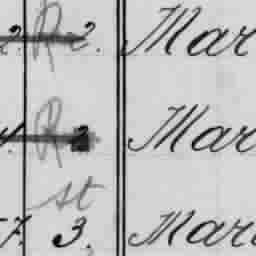 2. R 2. Mar
R 2 Mar
st
7. 3. Mar